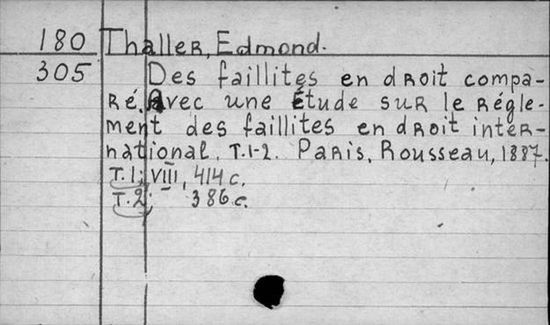 180 Thaller, Edmond.
305 Des faillites en droit compa-
ré. Avec une étude sur le régle-
ment des faillites en droit inter-
national. T.1-2. Paris, Rousseau, 1887.
T.1; VIII, 414 c.
T.2; 386 c.